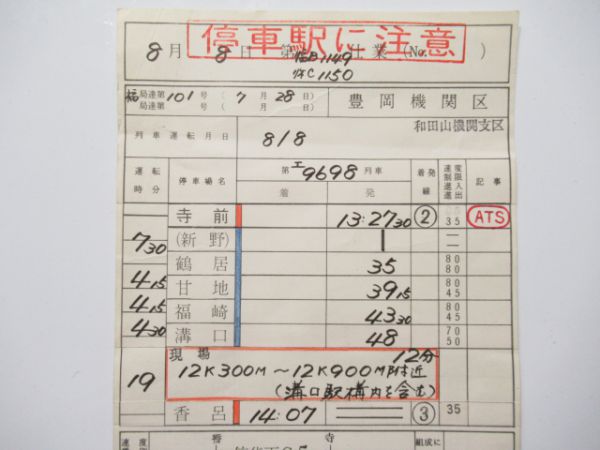 停車駅に注意
8月 8日 第 仕業 (No. )
1149
1150
福局達第101号 (7月28日) 豊岡機関区
局達第 号 ( 月 日) 和田山機関支区
列車運転月日 8/8
運転時分 停車場名 第エ9698列車 着発線 速度制限 進入 進出 記事
着 発
寺前 13:27 30 ② 35 ATS
7 30 (新野) | — —
鶴居 35 80 80
4 15 甘地 39 15 80 45
4 15 福崎 43 30 80 45
4 30 溝口 48 70 50
現場 12分
19 12K300M〜12K900M附近
(溝口駅構内を含む)
香呂 14:07 ③ 35
速度 寺 組成に